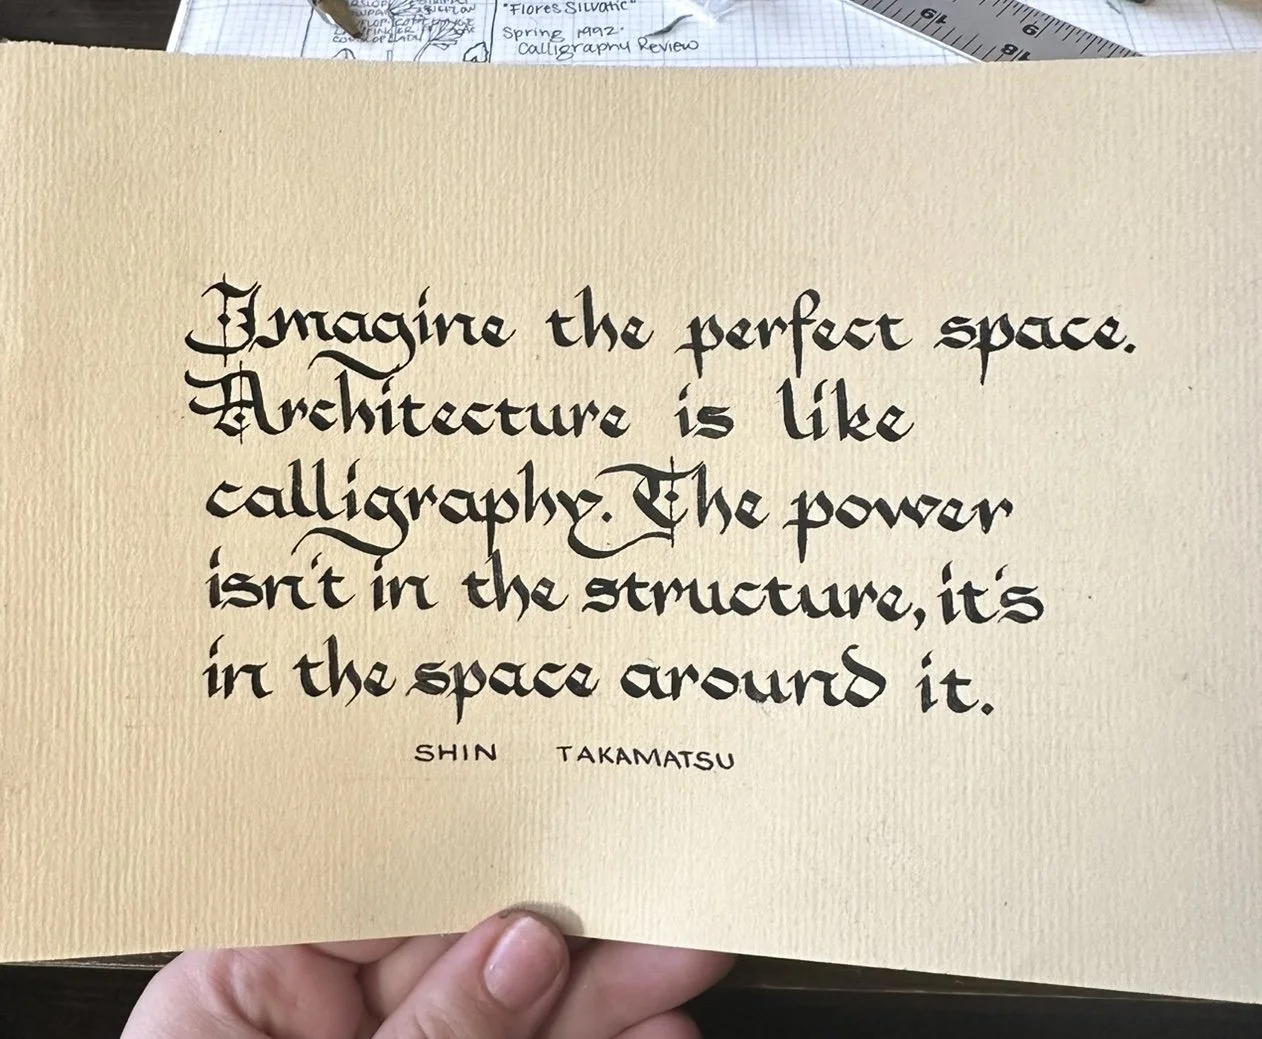 "Flores Silvatic"
Spring 1992.
Calligraphy Review
19
9
18
Imagine the perfect space.
Architecture is like
calligraphy. The power
isn't in the structure, it's
in the space around it.
SHIN TAKAMATSU